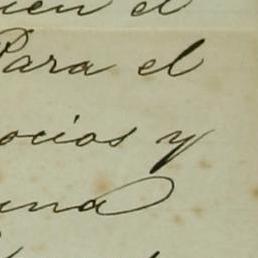 el
Para el
ocios y
una